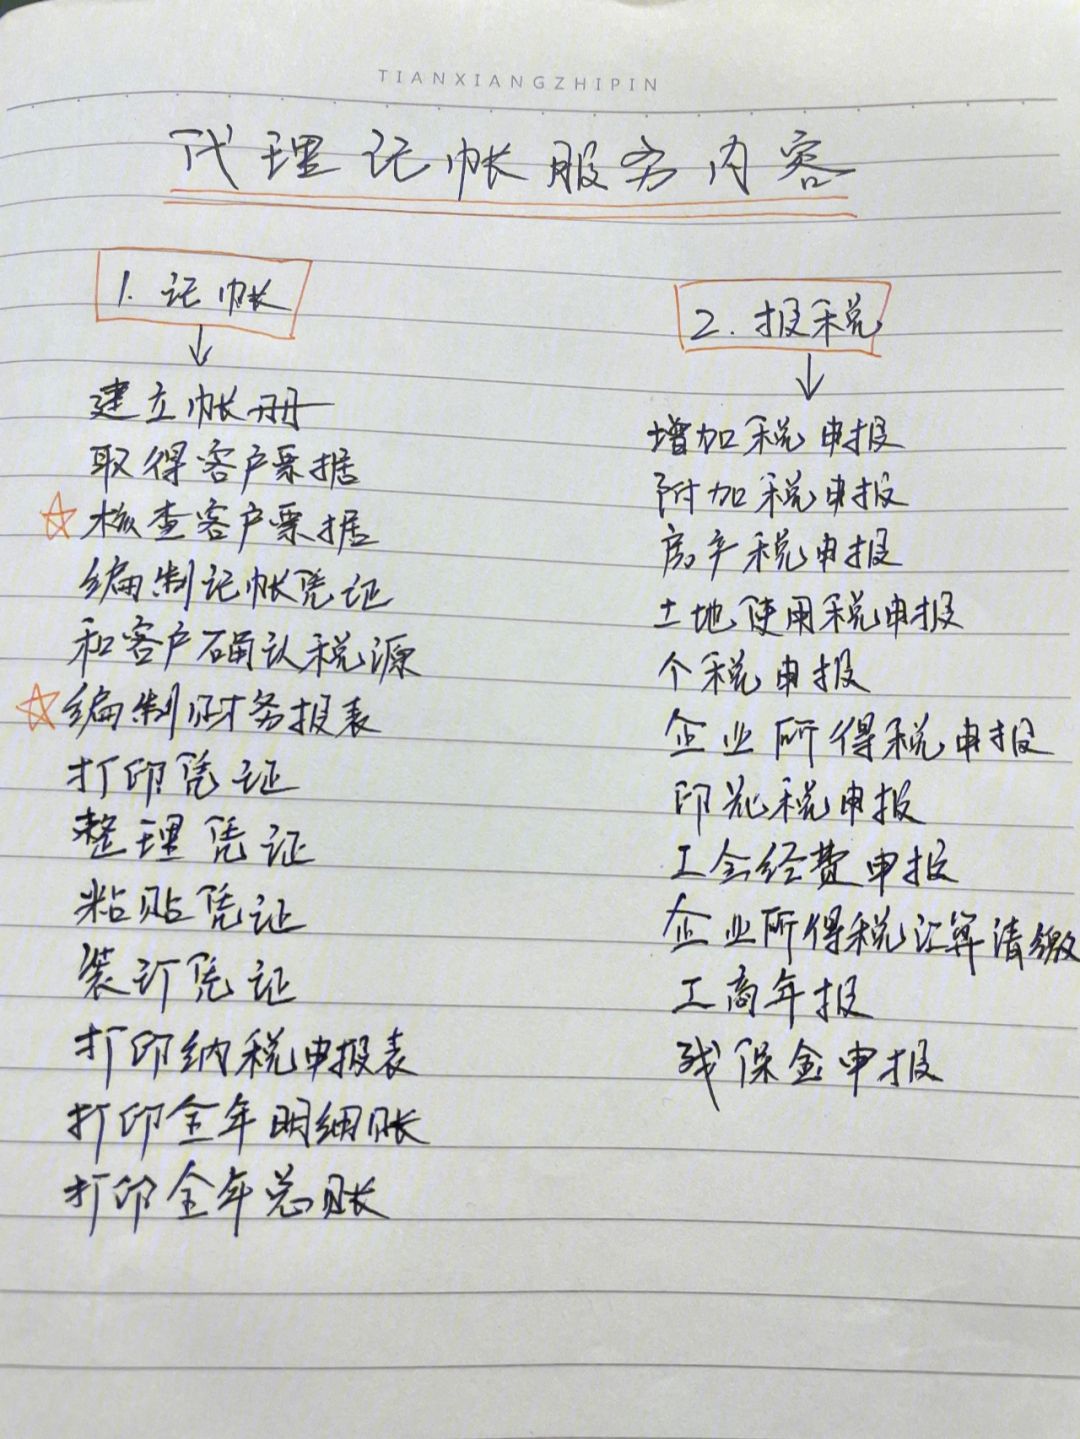 TIANXIANGZHIPIN
代理记帐服务内容
1. 记帐
建立帐册
取得客户票据
核查客户票据
编制记帐凭证
和客户确认税源
编制财务报表
打印凭证
整理凭证
粘贴凭证
装订凭证
打印纳税申报表
打印全年明细账
打印全年总账
2. 报税
增加税申报
附加税申报
房产税申报
土地使用税申报
个税申报
企业所得税申报
印花税申报
工会经费申报
企业所得税汇算清缴
工商年报
残保金申报